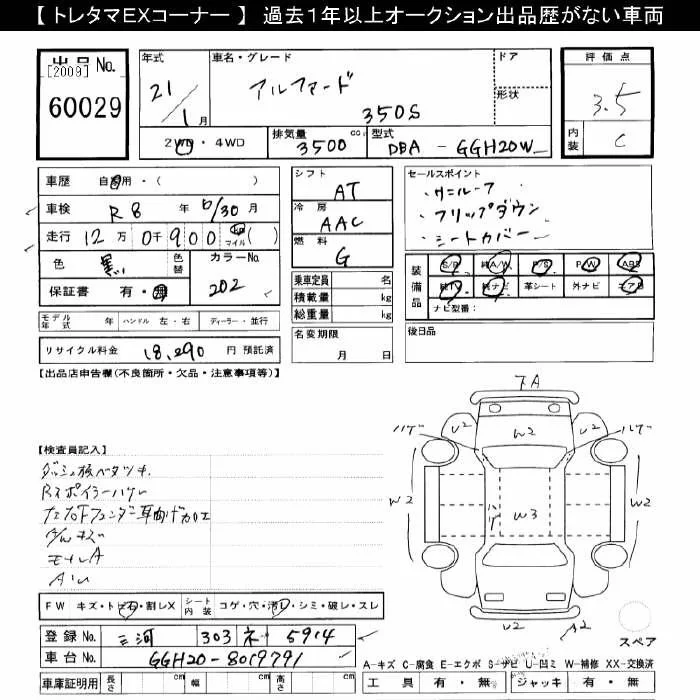 【 トレタマEXコーナー 】 過去１年以上オークション出品歴がない車両
出品 No.
[2009]
60029
年式 21/1月
車名・グレード
アルファード
350S
ドア
形状
2WD・4WD
排気量 3500 cc
型式 DBA - GGH20W
評価点
3.5
内装 C
車歴 自家用・( )
車検 R8 年 10/30 月
走行 12万0千900 km マイル ( )
色 黒 色替
カラーNo. 202
保証書 有・無
シフト AT
冷房 AAC
燃料 G
乗車定員 名
積載量 kg
総重量 kg
セールスポイント
・サンルーフ
・フリップダウン
・シートカバー
装備品
S/R 純A/W P/S P/W ABS
純TV 純ナビ 革シート 外ナビ エアB
ナビ型番：
モデル年式 年 ハンドル 左・右 ディーラー・並行
リサイクル料金 18,290 円 預託済
名変期限 月 日
後日品
【出品店申告欄(不良箇所・欠品・注意事項等)】
【検査員記入】
ダッシュ板ベタツキ
Rスポイラーハゲ
左右Fフェンダー耳曲げ加工
モールA
FA
U2 W2 U2
ハゲ ハゲ
W2 W3 W2
ハゲ
U2 A2
スペア
FW キズ・トビ石・割レX シート内装 コゲ・穴・汚レ・シミ・破レ・スレ
登録 No. 三河 303 ネ 5914
車台 No. GGH20-8019791
A-キズ C-腐食 E-エクボ S-サビ U-凹ミ W-補修 XX-交換済
車庫証明用 長さ cm 幅 cm 高さ cm
工具 有・無 ジャッキ 有・無